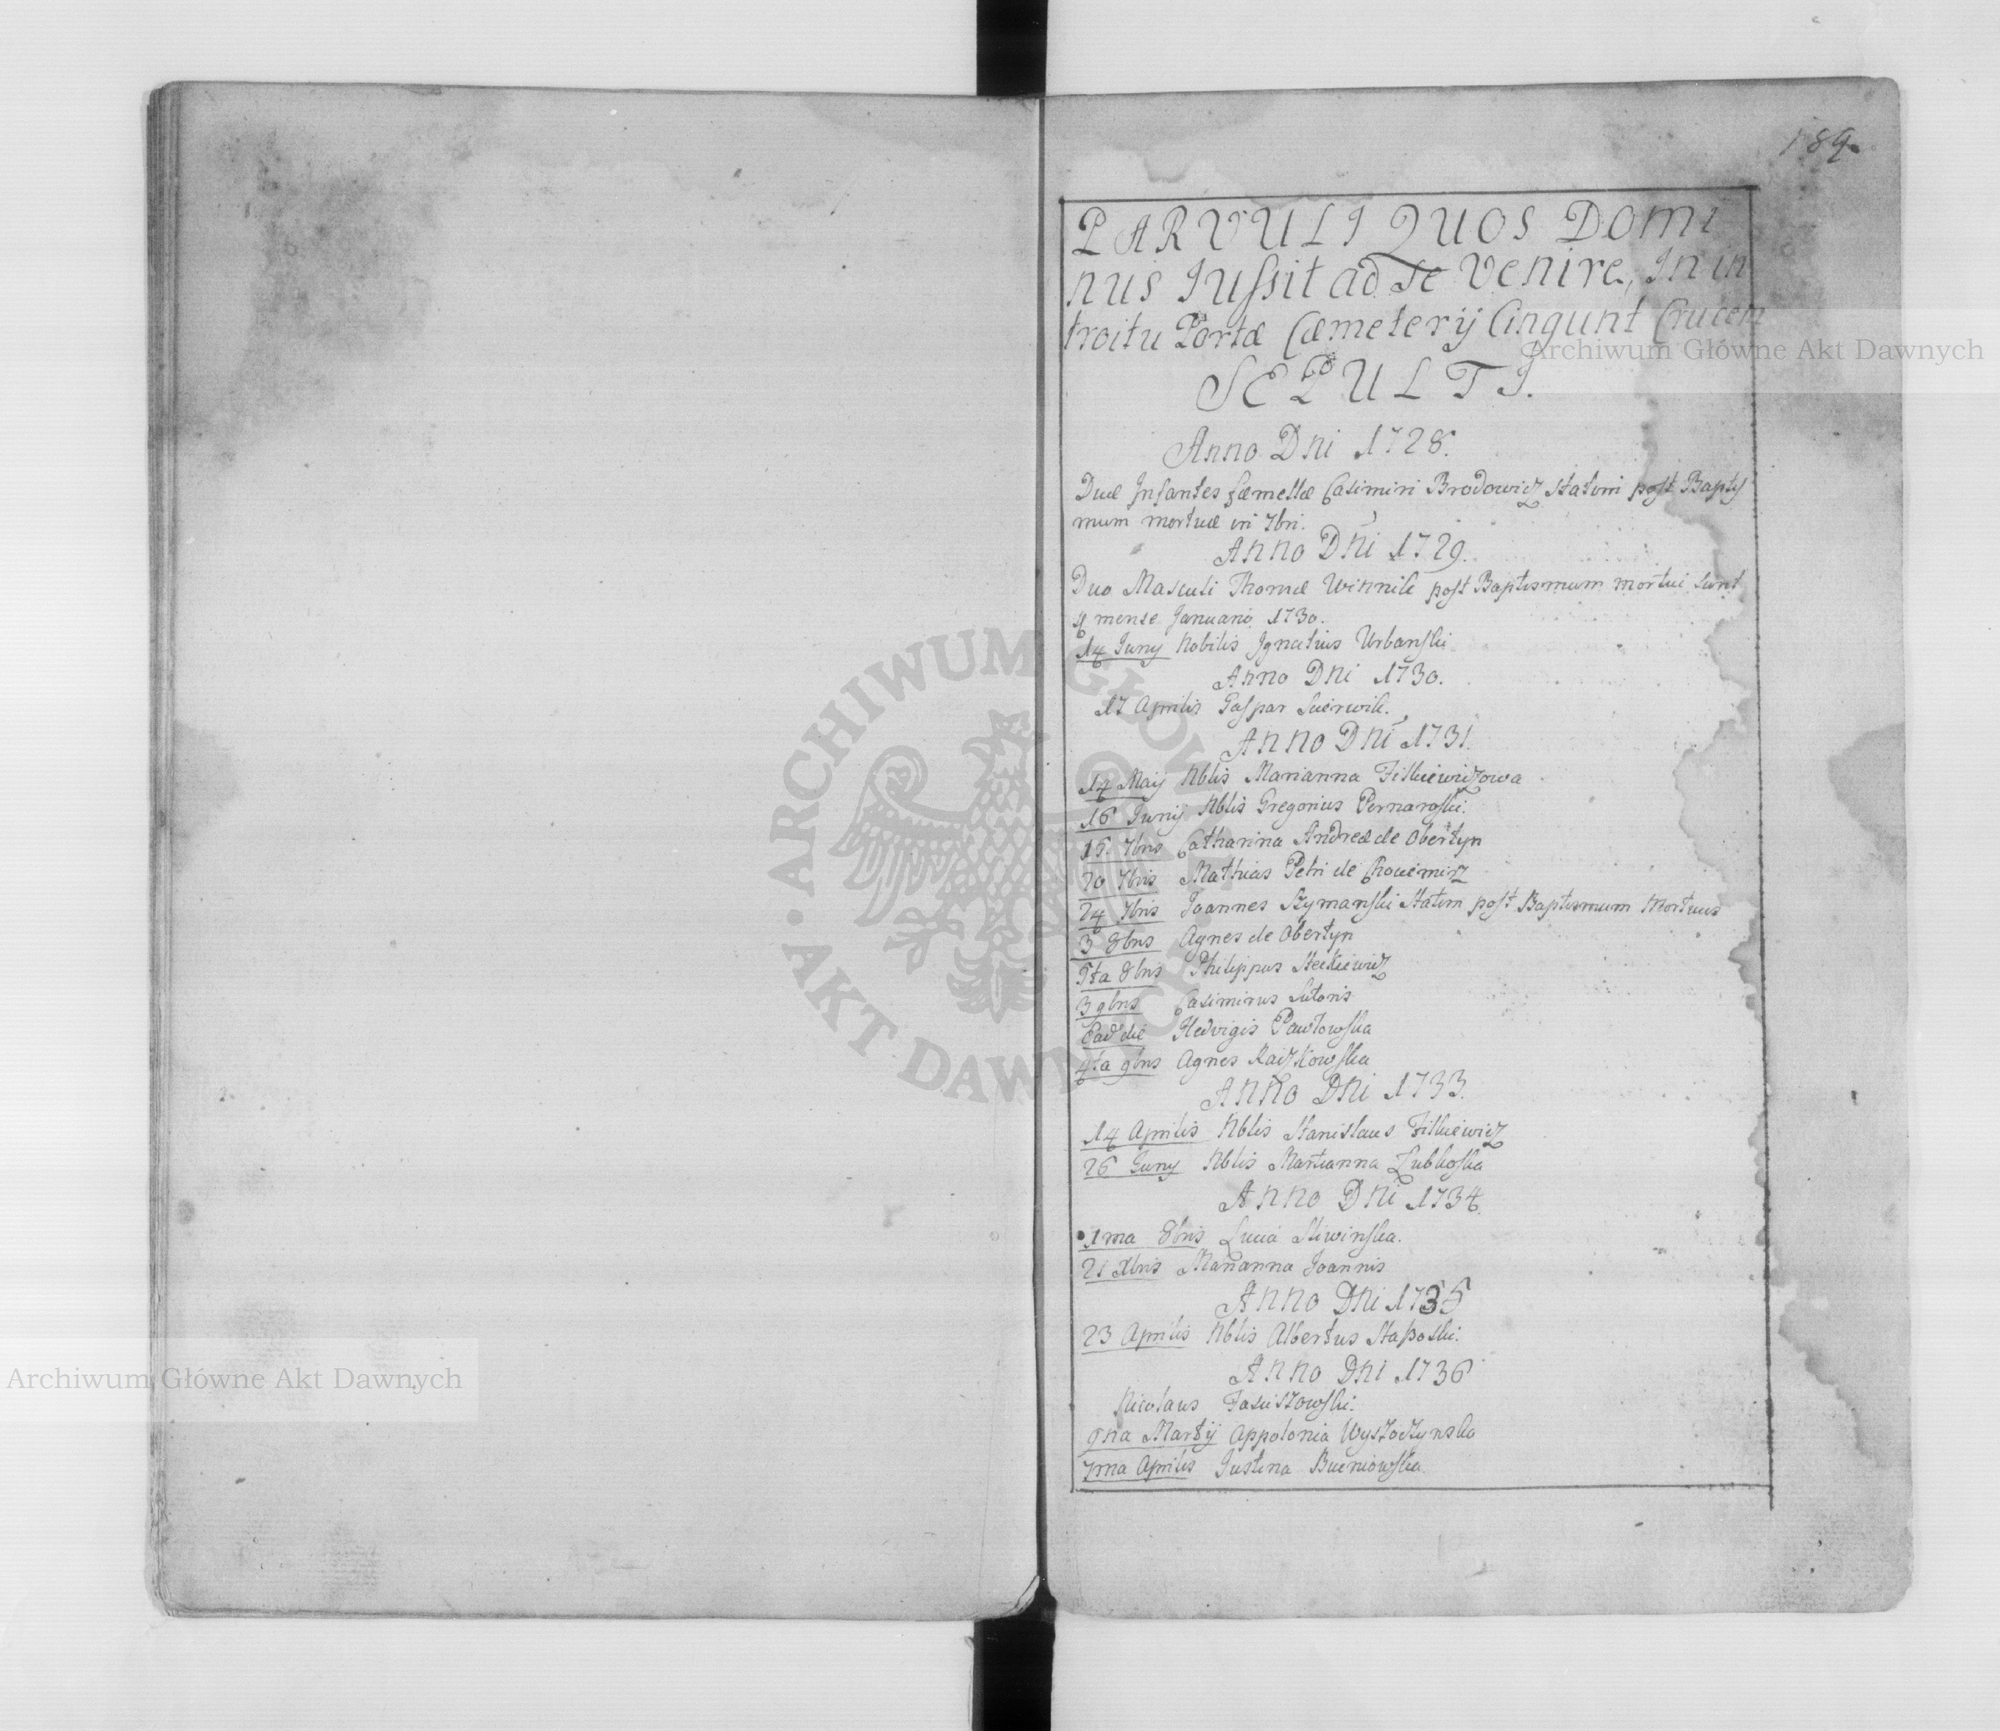 189.
PARVULI QUOS DOMI
nus Jussit ad Se Venire, In in
troitu Portæ Cæmeterij Cingunt Crucem
SEPULTI.
Anno Dni 1728.
Duæ Infantes fæmellæ Casimiri Brodowicz statim post Baptys
mum mortuæ in 7bri.
Anno Dni 1729.
Duo Masculi Thomæ Winnik post Baptismum mortui sunt
mense Januario 1730.
14 Juny Nobilis Ignatius Urbanski
Anno Dni 1730.
17 Aprilis Gaspar
Anno Dni 1731.
14 Maij Nblis Marianna Filkiewiczowa
16 Junij Nblis Gregorius Pernaroski:
15. 7bris Catharina Andreæ de Obertyn
20 7bris Mathias Petri de Chocimirz
24 7bris Joannes Szymanski statim post Baptismum Mortuus
3 8bris Agnes de Obertyn
5ta 8bris Philippus Steckiewicz
3 9bris Casimirus Sutoris
Ead die Hedvigis Pawlowska
4ta 9bris Agnes Raczkowska
Anno Dni 1733.
14 Aprilis Nblis Stanislaus Filkiewicz
26 Juny Nblis Marianna Zubkoska
Anno Dni 1734.
1ma 8bris Lucia Sliwinska.
21 Xbris Marianna Joannis
Anno Dni 1735
23 Aprilis Nblis Albertus Staposki:
Anno Dni 1736
Nicolaus
9na Martij Appolonia Wyszoczynska
7ma Aprilis Justina Bueniowska
Archiwum Główne Akt Dawnych
Archiwum Główne Akt Dawnych
ARCHIWUM GŁÓWNE AKT DAWNYCH